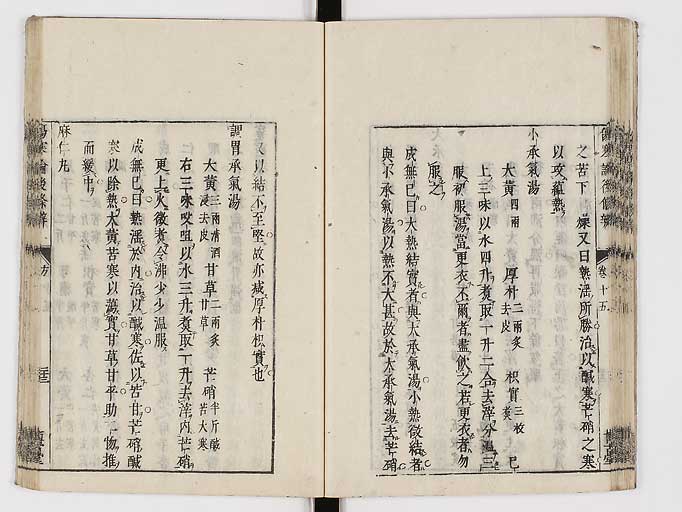 傷寒論後條辨 卷十五
之苦下燥又曰熱淫所勝治以鹹寒芒硝之寒
以攻蘊熱
小承氣湯
大黃四兩 厚朴二兩炙去皮 枳實三枚炙 已
上三味以水四升煑取一升二合去滓分溫三
服初服湯當更衣不爾者盡飲之若更衣者勿
服之
成無已曰大熱結實者與大承氣湯小熱微結者
與小承氣湯以熱不大甚故於大承氣湯去芒硝
又以結不至堅故亦減厚朴枳實也
調胃承氣湯
大黃三兩清酒浸去皮 甘草二兩炙甘草 芒硝半斤鹹苦大寒
右三味㕮咀以水三升煑取一升去滓内芒硝
更上火微煑令沸少少温服
成無已曰熱淫於内治以鹹寒佐以苦甘芒硝鹹
寒以除熱大黃苦寒以蕩實甘草甘平助二物推
而緩中
麻仁丸
傷寒論後條辨 方